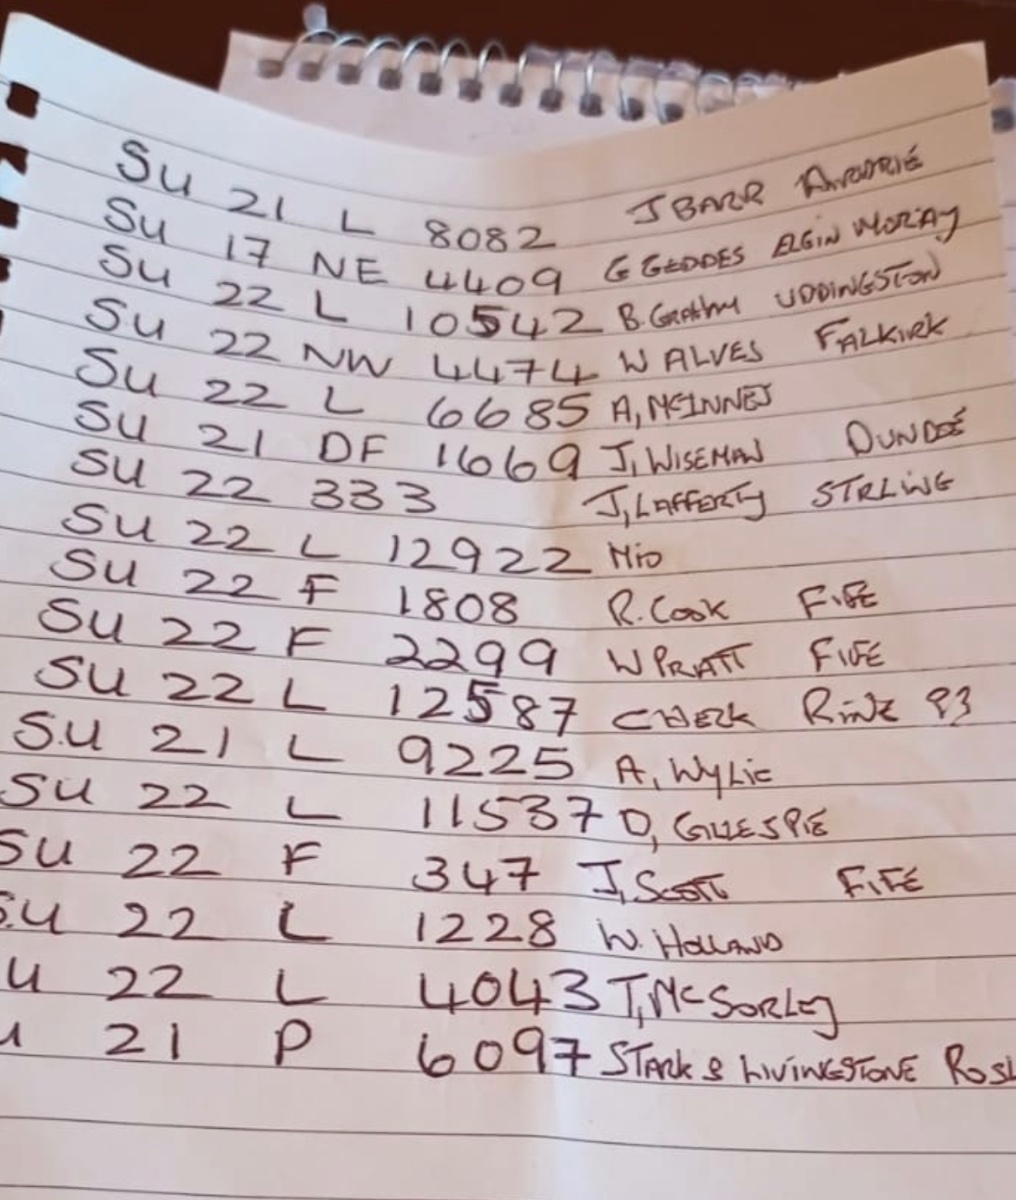 SU 21 L 8082 J BARR AIRDRIE
SU 17 NE 4409 G GEDDES ELGIN MORAY
SU 22 L 10542 B. Graham UDDINGSTON
SU 22 NW 4474 W ALVES FALKIRK
SU 22 L 6685 A, McINNES
SU 21 DF 1669 J, WISEMAN DUNDEE
SU 22 333 J, LAFFERTY STRLING
SU 22 L 12922
SU 22 F 1808 R. Cook FIFE
SU 22 F 2299 W PRATT FIFE
SU 22 L 12587 CHECK RING
S.U 21 L 9225 A, Wylie
SU 22 L 11537 D, GILLESPIE
SU 22 F 347 J, Scott FIFE
S.U 22 L 1228 W. HOLLAND
U 22 L 4043 T, McSORLEy
U 21 P 6097 STARK & LIVINGSTONE